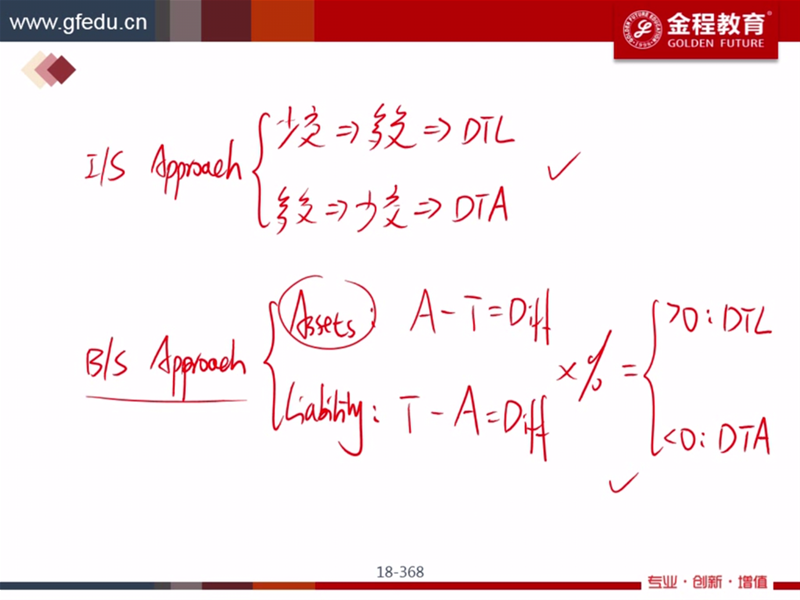 www.gfedu.cn
金程教育
GOLDEN FUTURE
I/S Approach
少交 ⇒ 多交 ⇒ DTL
多交 ⇒ 少交 ⇒ DTA
✓
B/S Approach
Assets: A - T = Diff
Liability: T - A = Diff
× % =
>0: DTL
<0: DTA
✓
18-368
专业·创新·增值